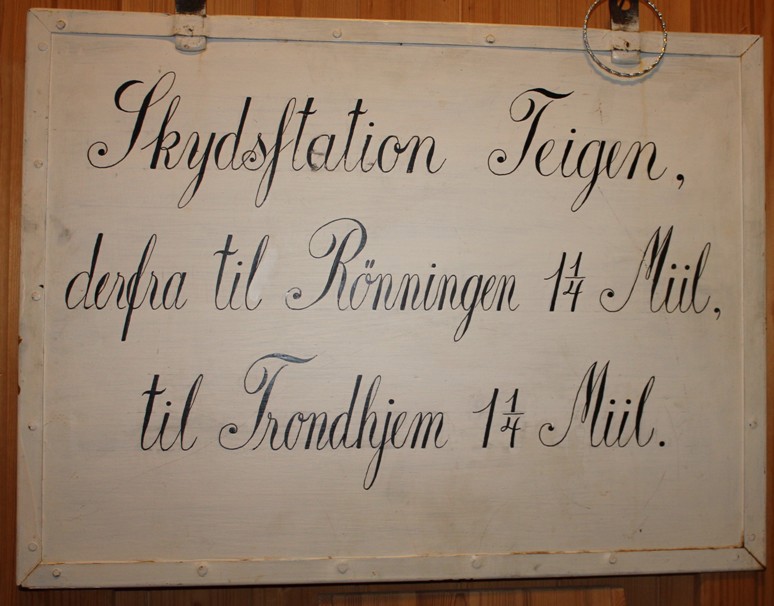 Skydsstation Teigen,
derfra til Rönningen 1 1/4 Miil,
til Trondhjem 1 1/4 Miil.